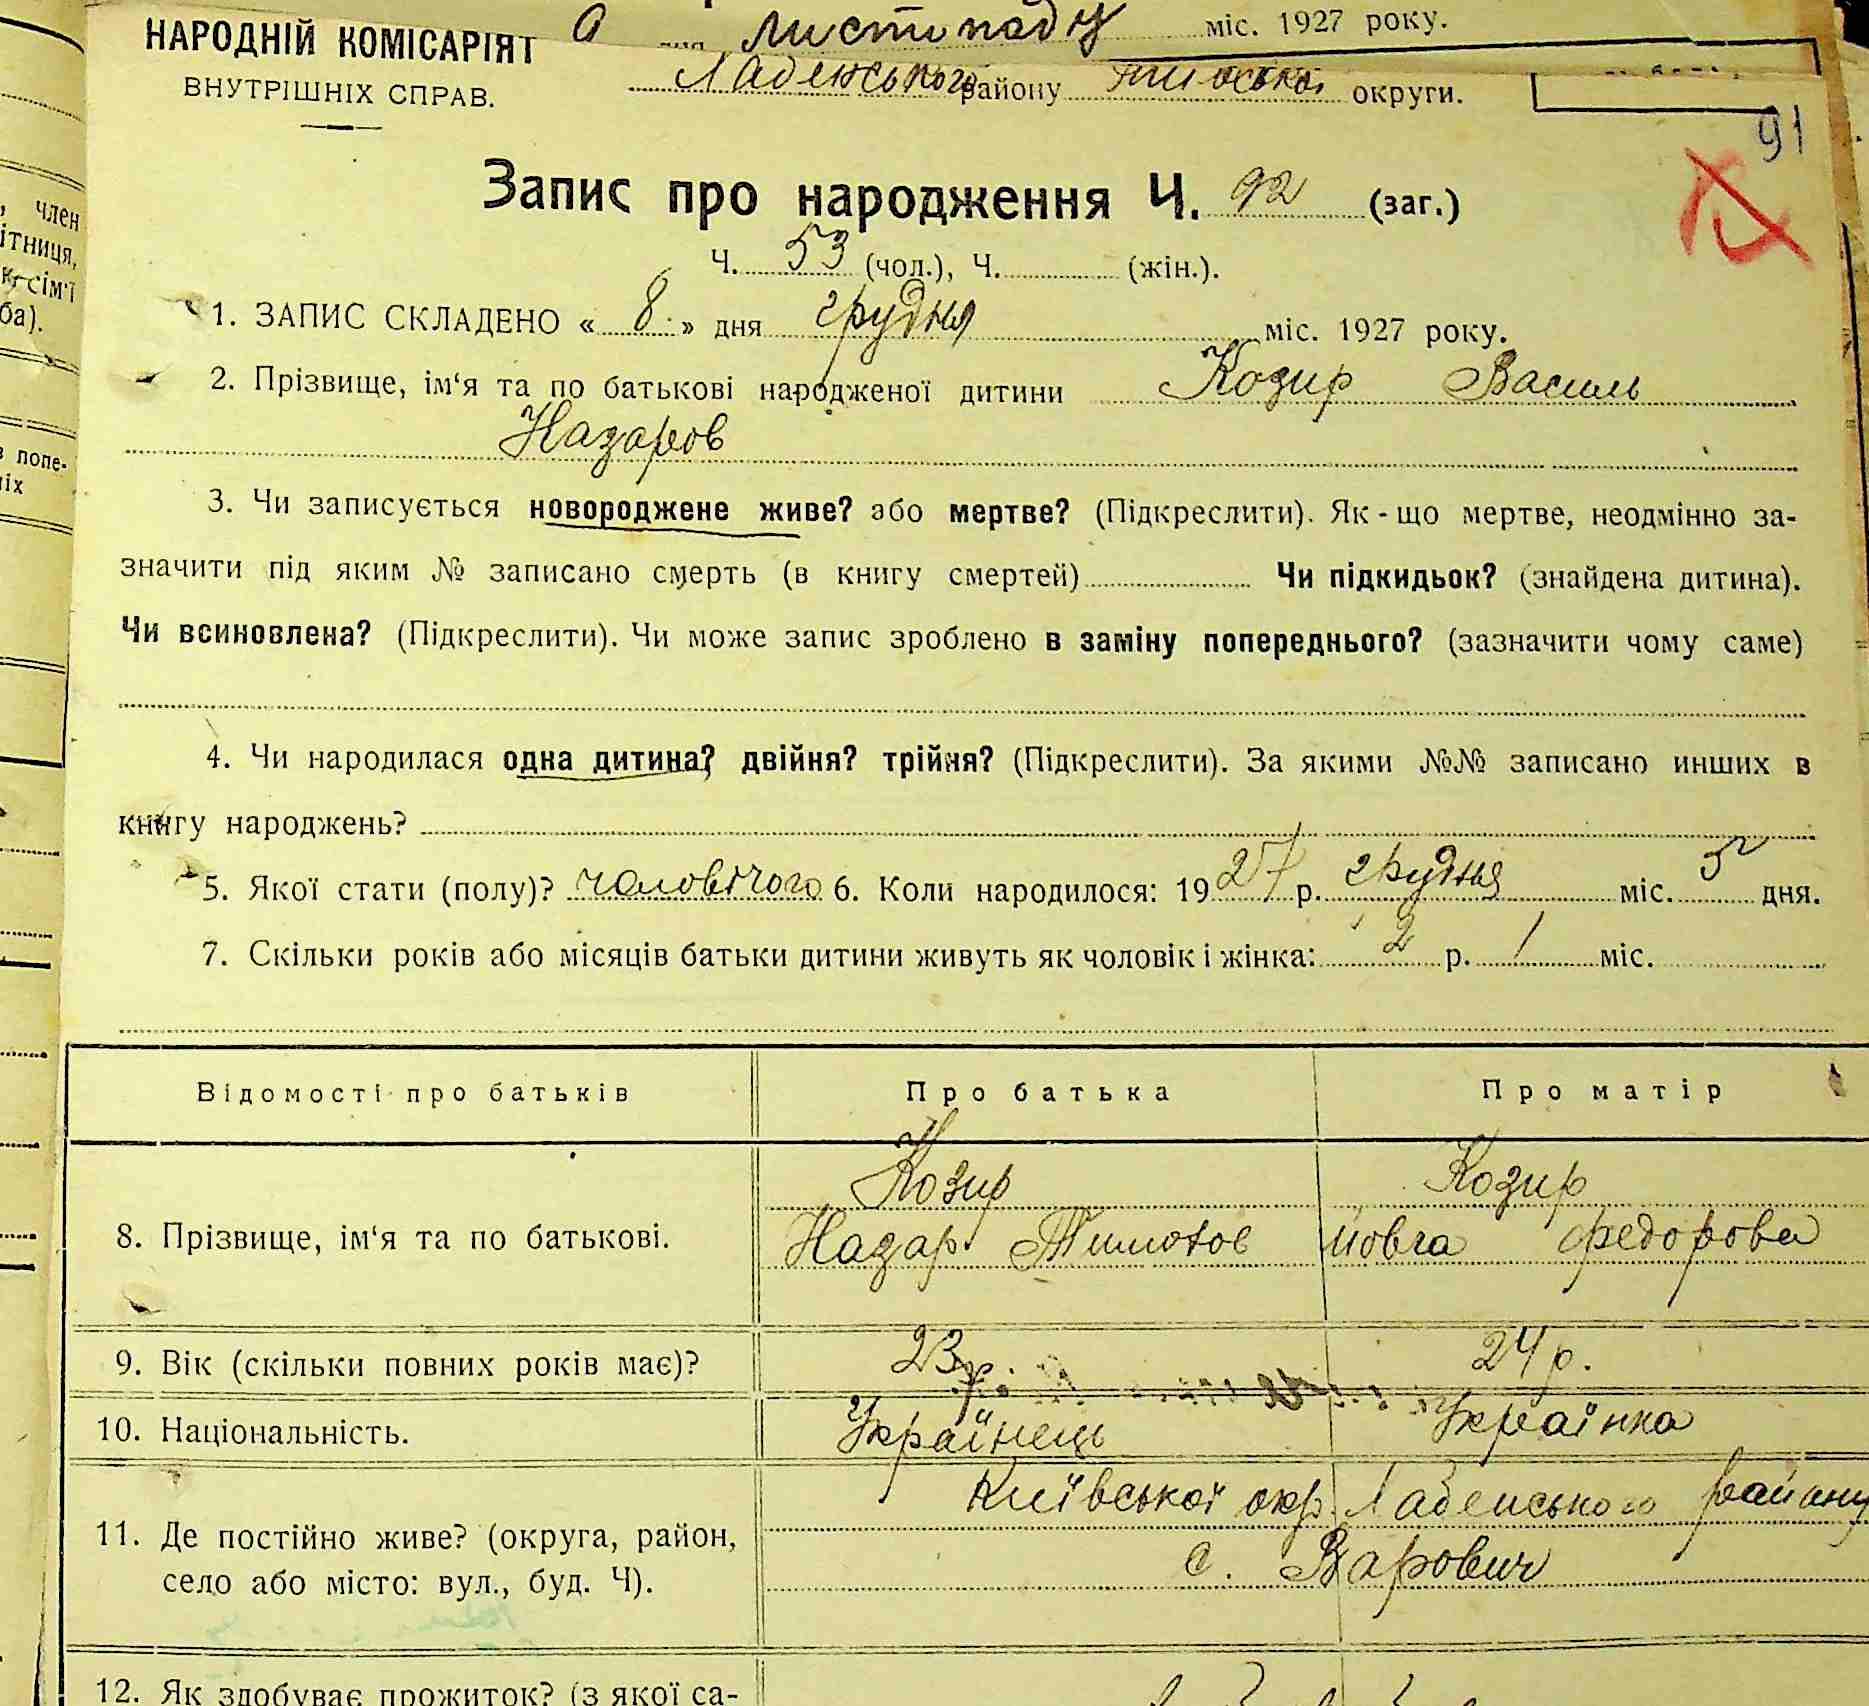 листопаду міс. 1927 року.
НАРОДНІЙ КОМІСАРІЯТ
ВНУТРІШНІХ СПРАВ.
району округи.
91
Запис про народження Ч. 92 (заг.)
Ч. 53 (чол.), Ч. (жін.).
1. ЗАПИС СКЛАДЕНО « 8 » дня грудня міс. 1927 року.
2. Прізвище, ім‘я та по батькові народженої дитини Козир Василь
Назаров
3. Чи записується новороджене живе? або мертве? (Підкреслити). Як-що мертве, неодмінно за-
значити під яким № записано смерть (в книгу смертей) Чи підкидьок? (знайдена дитина).
Чи всиновлена? (Підкреслити). Чи може запис зроблено в заміну попереднього? (зазначити чому саме)
4. Чи народилася одна дитина? двійня? трійня? (Підкреслити). За якими №№ записано инших в
книгу народжень?
5. Якої стати (полу)? чоловічого 6. Коли народилося: 1927 р. грудня міс. 5 дня.
7. Скільки років або місяців батьки дитини живуть як чоловік і жінка: 2 р. 1 міс.
Відомості про батьків Про батька Про матір
Козир Козир
8. Прізвище, ім‘я та по батькові. Назар Тимохов Мовга Федорова
9. Вік (скільки повних років має)? 23р. 24р.
10. Національність. Українець Українка
Київської окр. району
11. Де постійно живе? (округа, район,
с. Варовичі
село або місто: вул., буд. Ч).
12. Як здобуває прожиток? (з якої са-
член
ітниця,
сім‘ї
ба).
в попе-
іх